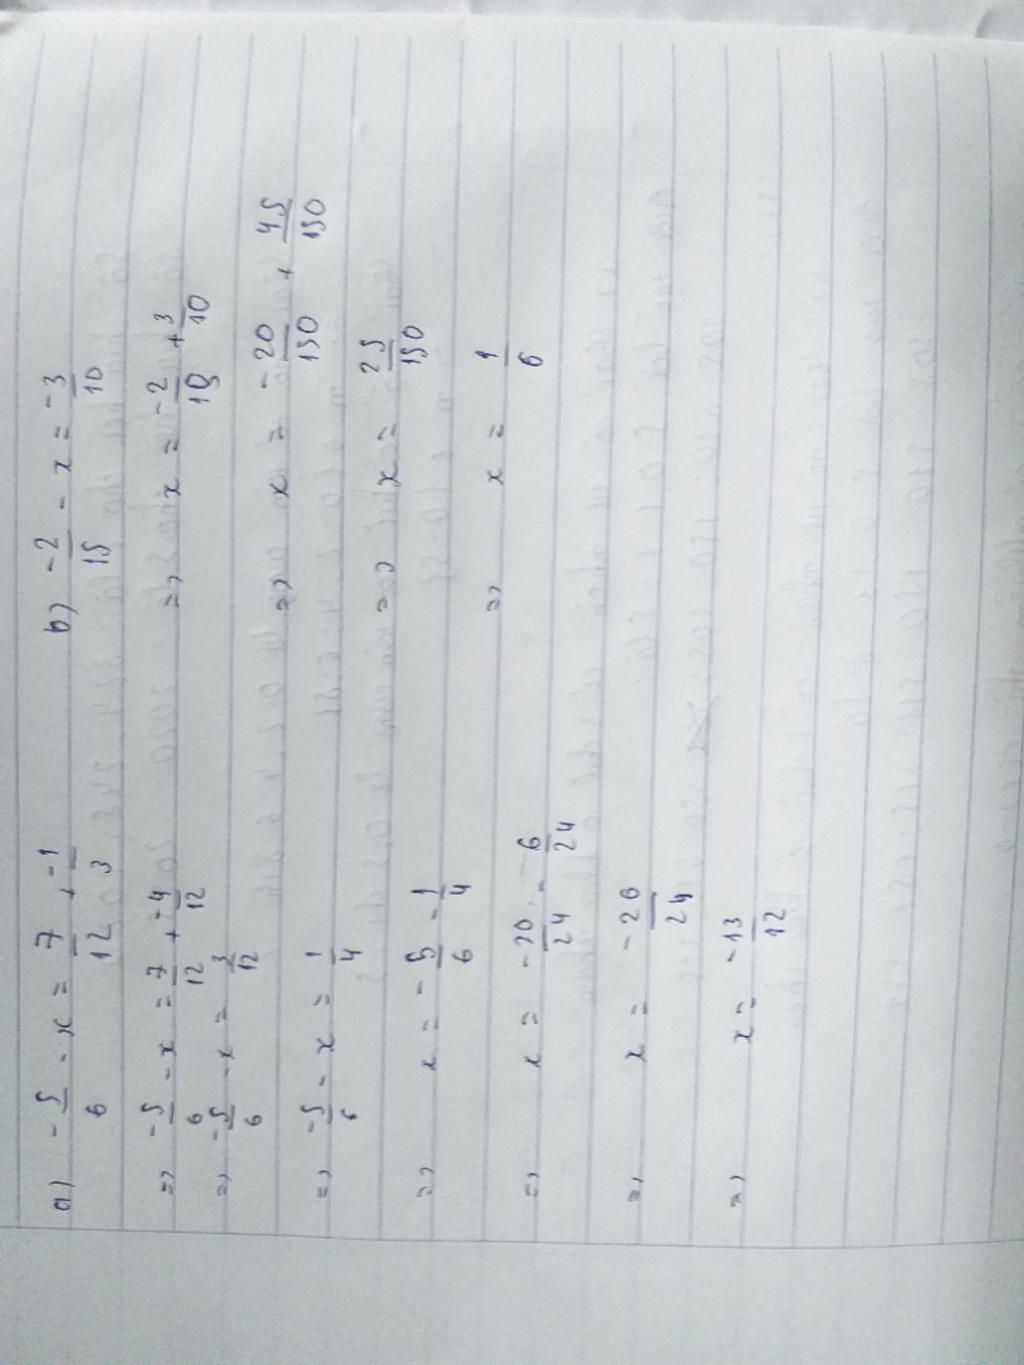 a) -5/6 - x = 7/12 + -1/3
=> -5/6 - x = 7/12 + -4/12
=> -5/6 - x = 3/12
=> -5/6 - x = 1/4
=> x = -5/6 - 1/4
=> x = -20/24 - 6/24
=> x = -26/24
=> x = -13/12
b) -2/15 - x = -3/10
=> x = -2/15 + 3/10
=> x = -20/150 + 45/150
=> x = 25/150
=> x = 1/6